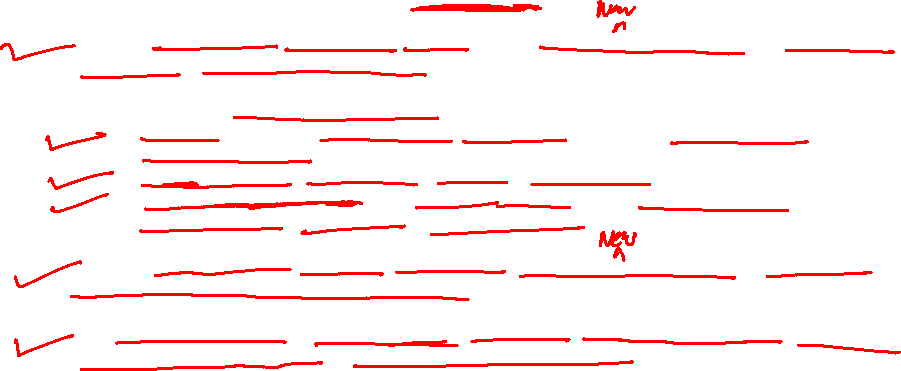 New
New